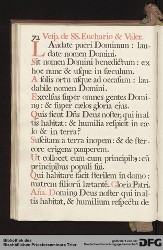 72 Vesp. de SS. Euchario & Valer.
Laudate pueri Dominum : lau-
date nomen Domini.
Sit nomen Domini benedictum : ex
hoc nunc & usque in sæculum.
A solis ortu usque ad occasum : lau-
dabile nomen Domini.
Excelsus super omnes gentes Domi-
nus : & super cælos gloria ejus.
Quis sicut Dñs Deus noster, qui in al-
tis habitat : & humilia respicit in cœ-
lo & in terra?
Suscitans a terra inopem : & de ster-
core erigens pauperem.
Ut collocet eum cum principibus : cũ
principibus populi sui.
Qui habitare facit sterilem in domo :
matrem filiorũ lætantē. Gloria Patri.
Dominus Deus noster qui in al-
tis habitat, & humilia respectu de
Bibliothek des
Bischöflichen Priesterseminars Trier
DFG